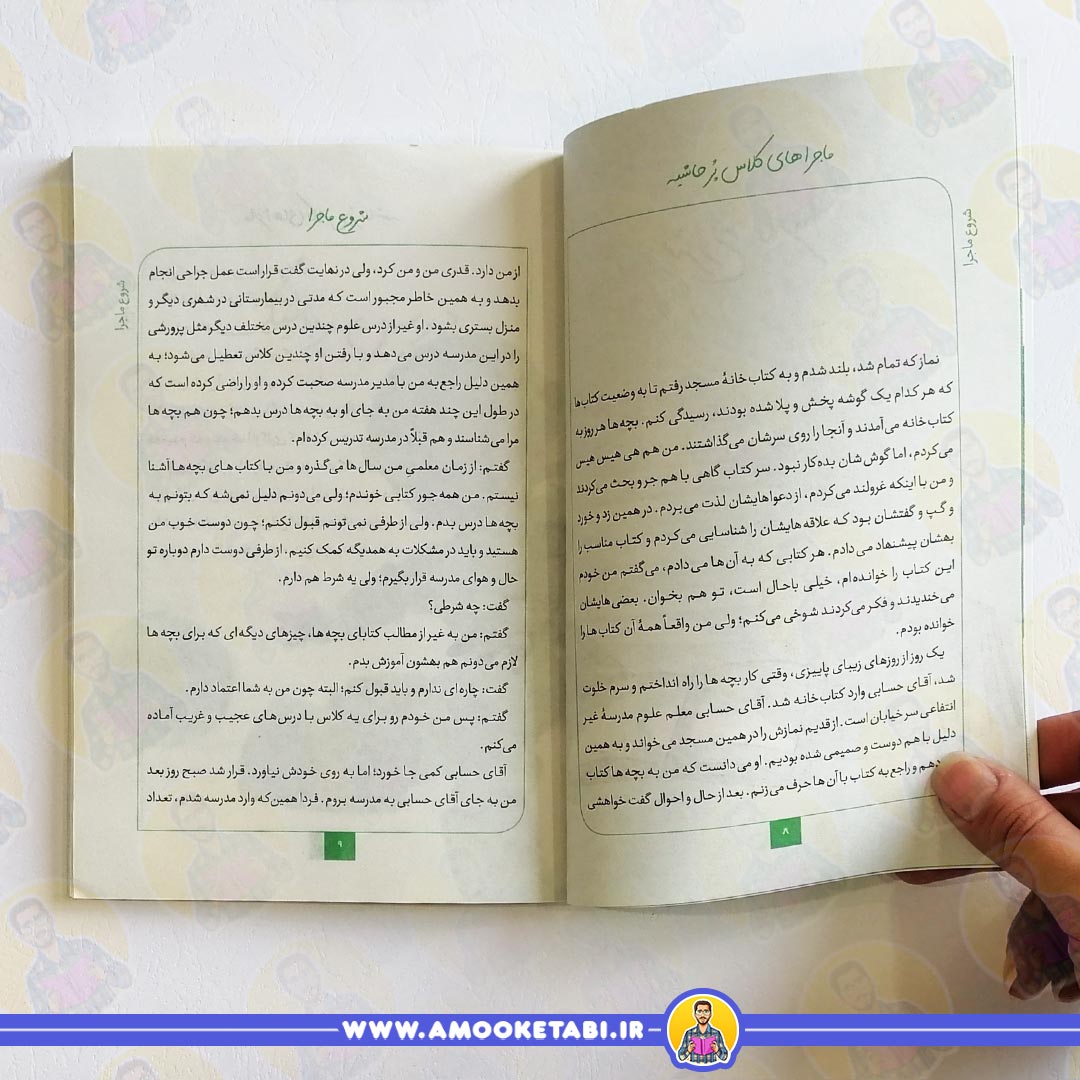 ماجراهای کلاس پُر حاشیه
شروع ماجرا
نماز که تمام شد، بلند شدم و به کتاب خانهٔ مسجد رفتم تا به وضعیت کتاب‌ها
که هر کدام یک گوشه پخش و پلا شده بودند، رسیدگی کنم. بچه‌ها هر روز به
کتاب خانه می‌آمدند و آنجا را روی سرشان می‌گذاشتند. من هم هی هیس هیس
می‌کردم، اما گوش‌شان بده‌کار نبود. سر کتاب گاهی با هم جر و بحث می‌کردند
و من با اینکه غرولند می‌کردم، از دعواهایشان لذت می‌بردم. در همین زد و خورد
و گپ و گفتشان بود که علاقه‌هایشان را شناسایی می‌کردم و کتاب مناسب را
بهشان پیشنهاد می‌دادم. هر کتابی که به آن‌ها می‌دادم، می‌گفتم من خودم
این کتاب را خوانده‌ام، خیلی باحال است، تو هم بخوان. بعضی‌هایشان
می‌خندیدند و فکر می‌کردند شوخی می‌کنم؛ ولی من واقعاً همهٔ آن کتاب‌ها را
خوانده بودم.
یک روز از روزهای زیبای پاییزی، وقتی کار بچه‌ها را راه انداختم و سرم خلوت
شد، آقای حسابی وارد کتاب‌خانه شد. آقای حسابی معلم علوم مدرسهٔ غیر
انتفاعی سر خیابان است. از قدیم نمازش را در همین مسجد می‌خواند و به همین
دلیل با هم دوست و صمیمی شده بودیم. او می‌دانست که من به بچه‌ها کتاب
دهم و راجع به کتاب با آن‌ها حرف می‌زنم. بعد از حال و احوال گفت خواهشی
۸
شروع ماجرا
شروع ماجرا
از من دارد. قدری من و من کرد، ولی در نهایت گفت قرار است عمل جراحی انجام
بدهد و به همین خاطر مجبور است که مدتی در بیمارستانی در شهری دیگر و
منزل بستری بشود. او غیر از درس علوم چندین درس مختلف دیگر مثل پرورشی
را در این مدرسه درس می‌دهد و با رفتن او چندین کلاس تعطیل می‌شود؛ به
همین دلیل راجع به من با مدیر مدرسه صحبت کرده و او را راضی کرده است که
در طول این چند هفته من به جای او به بچه‌ها درس بدهم؛ چون هم بچه‌ها
مرا می‌شناسند و هم قبلاً در مدرسه تدریس کرده‌ام.
گفتم: از زمان معلمیِ من سال‌ها می‌گذره و من با کتاب‌های بچه‌ها آشنا
نیستم. من همه جور کتابی خوندم؛ ولی می‌دونم دلیل نمی‌شه که بتونم به
بچه‌ها درس بدم. ولی از طرفی نمی‌تونم قبول نکنم؛ چون دوست خوب من
هستید و باید در مشکلات به همدیگه کمک کنیم. از طرفی دوست دارم دوباره تو
حال و هوای مدرسه قرار بگیرم؛ ولی یه شرط هم دارم.
گفت: چه شرطی؟
گفتم: من به غیر از مطالب کتابای بچه‌ها، چیزهای دیگه‌ای که برای بچه‌ها
لازم می‌دونم هم بهشون آموزش بدم.
گفت: چاره‌ای ندارم و باید قبول کنم؛ البته چون من به شما اعتماد دارم.
گفتم: پس من خودم رو برای یه کلاس با درس‌های عجیب و غریب آماده
می‌کنم.
آقای حسابی کمی جا خورد؛ اما به روی خودش نیاورد. قرار شد صبح روز بعد
من به جای آقای حسابی به مدرسه بروم. فردا همین‌که وارد مدرسه شدم، تعداد
۹
WWW.AMOOKETABI.IR